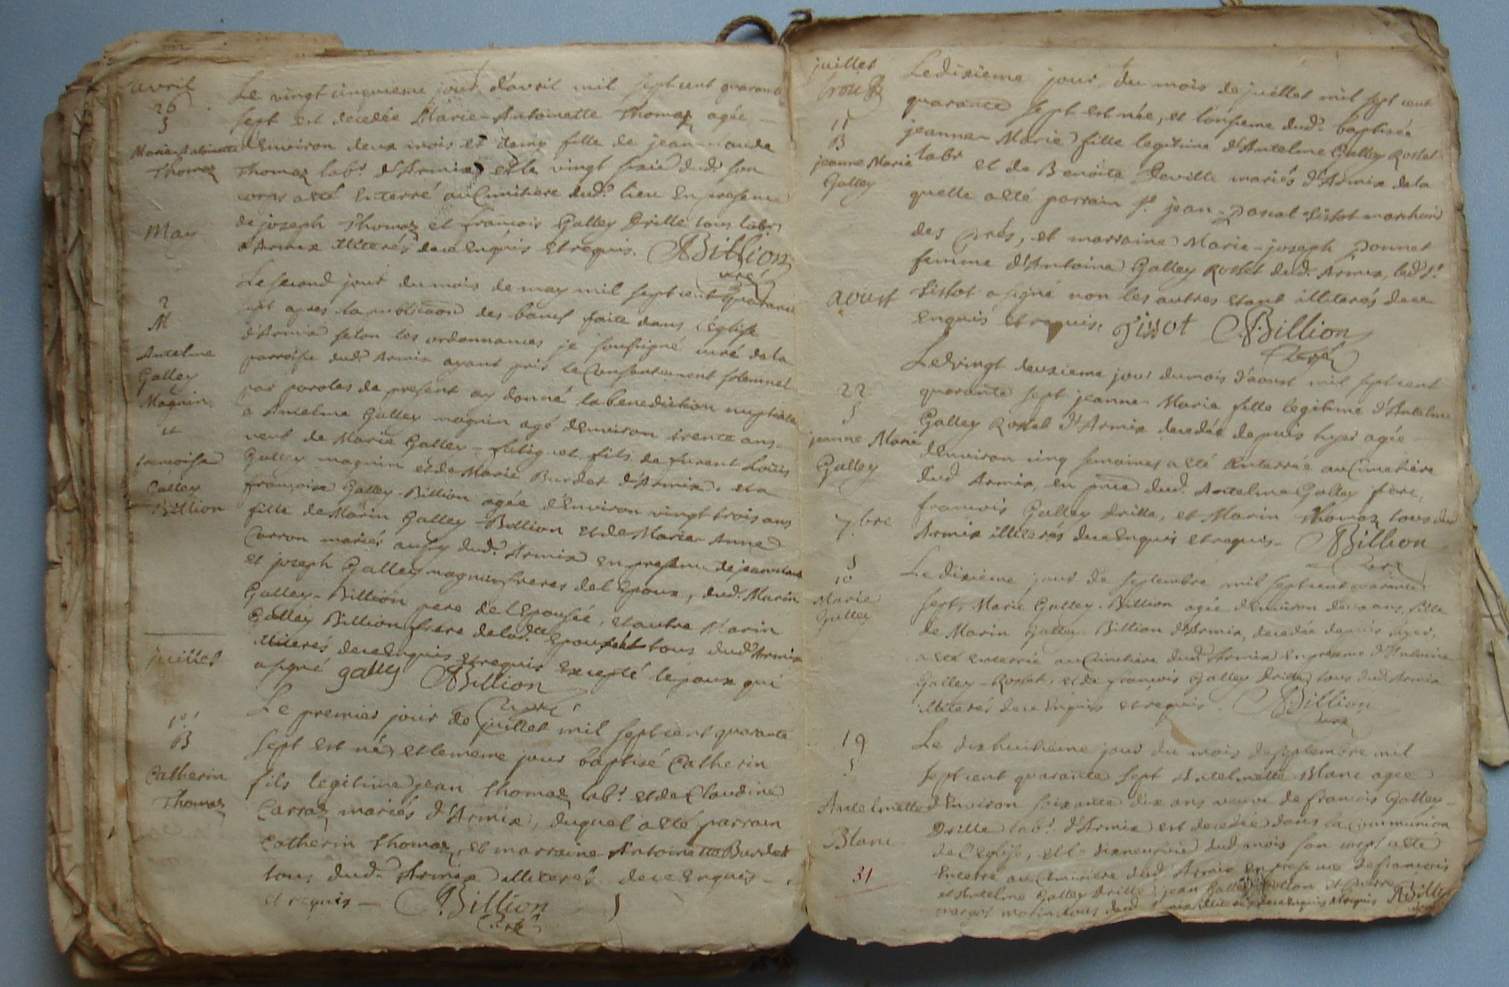 avril
26
S
Marie Antoinette
Thomaz
Le vingt cinquieme jour d'avril mil sept cent quarante
sept est decedée Marie-Antoinette Thomaz agée
d'environ deux mois et demy fille de jean claude
Thomaz labr d'Armix et le vingt sixie dud. son
corps a eté enterré au Cimitiere dud. lieu en presence
de joseph Thomaz et françois Galley Drille tous labrs
d'Armix illiterés de ce enquis et requis. Billion
curé
May
2
M
Antelme
Galley
Magnin
et
francoise
Galley
Billion
Le second jour du mois de may mil sept cent quarante
sept apres la publicaon des bancs faite dans l'Eglise
d'Armix selon les ordonnances je soussigné curé de la
parroisse dud. Armix ayant pris le Consentement solemnel
par paroles de present ay donné la benediction nuptiale
a Antelme Galley magnin agé d'environ trente ans
veuf de Marie Galley et fils de furent Loüis
Galley magnin et de Marie Burdet d'Armix. et a
françoise Galley-Billion agée d'Environ vingt trois ans
fille de Marin Galley-Billion et de Marie Anne
Carron mariés aussy dud. Armix en presence de jean
et joseph Galley magnin freres de l'Epoux, dud. Marin
Galley-Billion pere de l'Epousée, et autre Marin
Galley Billion frere de lad.te Epousée tous dud. Armix
illiterés de ce enquis et requis excepté l'epoux qui
a signé gally Billion
curé
juillet
1er
B
Catherin
Thomaz
Le premier jour de juillet mil sept cent quarante
sept est né, et le meme jour baptisé Catherin
fils legitime jean Thomaz labr. et de Claudine
Carraz mariés d'Armix, duquel a eté parrain
Catherin Thomaz, et marraine Antoinette Burdet
tous dud. Armix illiterés de ce Enquis
et requis — Billion
Curé
juillet
11
B
jeanne Marie
Galley
Le dixieme jour du mois de juillet mil sept cent
quarante sept est née, et l'onsieme dud. baptisée
jeanne-Marie fille legitime d'Antelme Galley Rostat
labr et de Benoite Deville mariés d'Armix de la
quelle a eté parrain sr. jean-Pascal Sistot marchand
des Prés, et marraine Marie-joseph Ponnet
femme d'Antoine Galley Rostat dud. Armix, led. sr.
Sistot a signé non les autres etant illiterés de ce
enquis et requis. Sistot Billion
Curé
aoust
22
S
jeanne Marie
Galley
Le vingt deuxieme jour du mois d'aoust mil sept cent
quarante sept jeanne-Marie fille legitime d'Antelme
Galley Rostat d'Armix decedée depuis hyer agée
d'environ cinq semaines a eté Enterrée au Cimetiere
dud. Armix, en pnce dud. Antelme Galley pere,
francois Galley Drille, et Marin Thomaz tous dud.
Armix illiterés de ce enquis et requis — Billion
Curé
7.bre
S
10
Marie
Galley
Le dixieme jour de septembre mil sept cent quarante
sept, Marie Galley-Billion agée d'environ deux ans, fille
de Marin Galley-Billion d'Armix, decedée depuis hyer,
a eté enterrée au Cimetiere dud. Armix en presence d'Antoine
Galley-Rostat, et de françois Galley Drille tous dud. Armix
illiterés de ce Enquis et requis. Billion
Curé
19
S
Antelmette
Blanc
31
Le dixhuitieme jour du mois de septembre mil
sept cent quarante sept Antelmette Blanc agée
d'Environ soixante dix ans veuve de francois Galley-
Drille labr. d'Armix est decedée dans la Communion
de l'eglise, et le dixneuvie dud. mois son corps a eté
Enterré au Cimetiere dud. Armix en presence de francois
et Antelme Galley Drille, jean Galley Billion et Pierre
tous dud. Armix illiterés de ce enquis et requis Billion